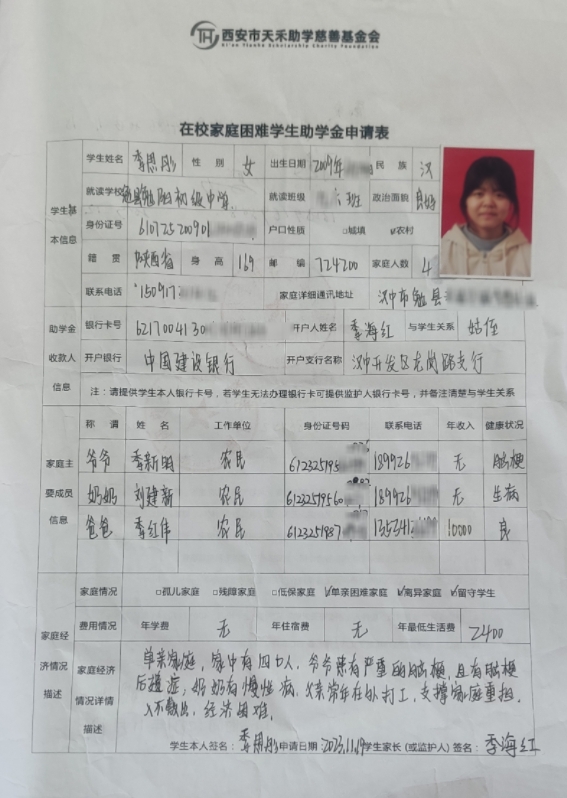 西安市天禾助学慈善基金会
Xi'an Tianhe Scholarship Charity Foundation
在校家庭困难学生助学金申请表
学生基本信息
学生姓名 季思彤 性别 女 出生日期 2009年 民族 汉
就读学校 初级中学 就读班级 六班 政治面貌 良好
身份证号 610725200901 户口性质 □城填 ☑农村
籍贯 陕西省 身高 169 邮编 724200 家庭人数 4
联系电话 150917 家庭详细通讯地址 汉中市勉县
助学金收款人信息
银行卡号 6217004130 开户人姓名 季海红 与学生关系 姑侄
开户银行 中国建设银行 开户支行名称 汉中开发区龙岗路支行
注：请提供学生本人银行卡号，若学生无法办理银行卡可提供监护人银行卡号，并备注清楚与学生关系
家庭主要成员信息
称谓 姓名 工作单位 身份证号码 联系电话 年收入 健康状况
爷爷 季新明 农民 612325195 189926 无 脑梗
奶奶 刘建新 农民 61232519560 189926 无 生病
爸爸 季红伟 农民 6123251987 1353413 10000 良
家庭经济情况描述
家庭情况 □孤儿家庭 □残障家庭 □低保家庭 ☑单亲困难家庭 ☑离异家庭 ☑留守学生
费用情况 年学费 无 年住宿费 无 年最低生活费 2400
家庭经济情况详情描述
单亲家庭，家中有四口人，爷爷患有严重的脑梗，且有脑梗
后遗症，奶奶有慢性病，父亲常年在外打工，支撑家庭重担，
入不敷出，经济困难。
学生本人签名：季思彤 申请日期 2023.11.19 学生家长（或监护人）签名：季海红